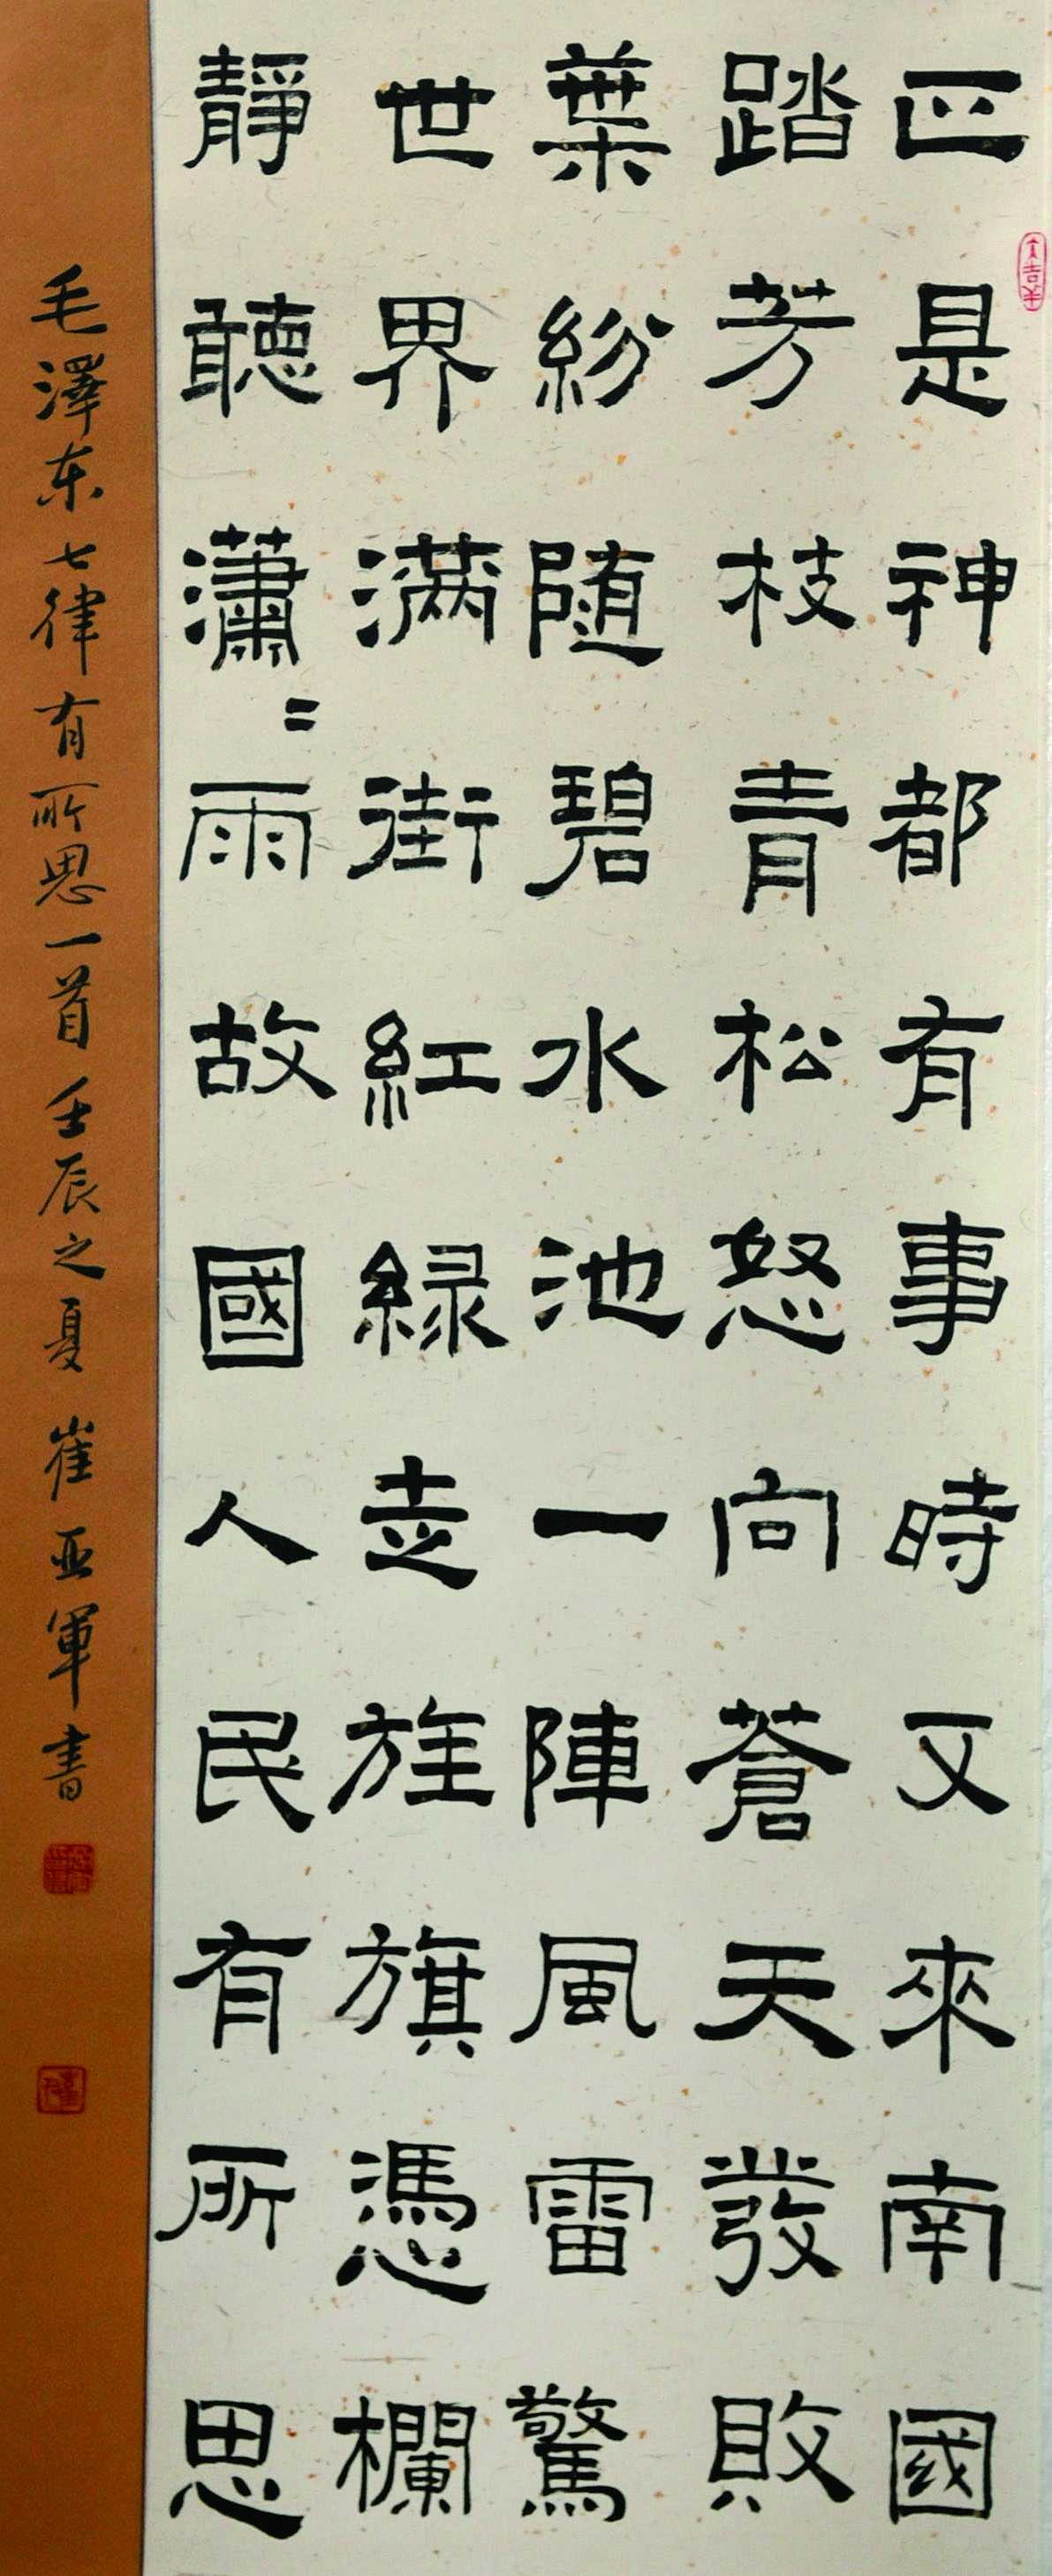 正是神都有事時又來南國
踏芳枝青松怒向蒼天發敗
葉紛随碧水池一陣風雷驚
世界滿街紅緑走旌旗憑欄
靜聽瀟〻雨故國人民有所思
毛澤东七律有所思一首 壬辰之夏 崔亚軍书